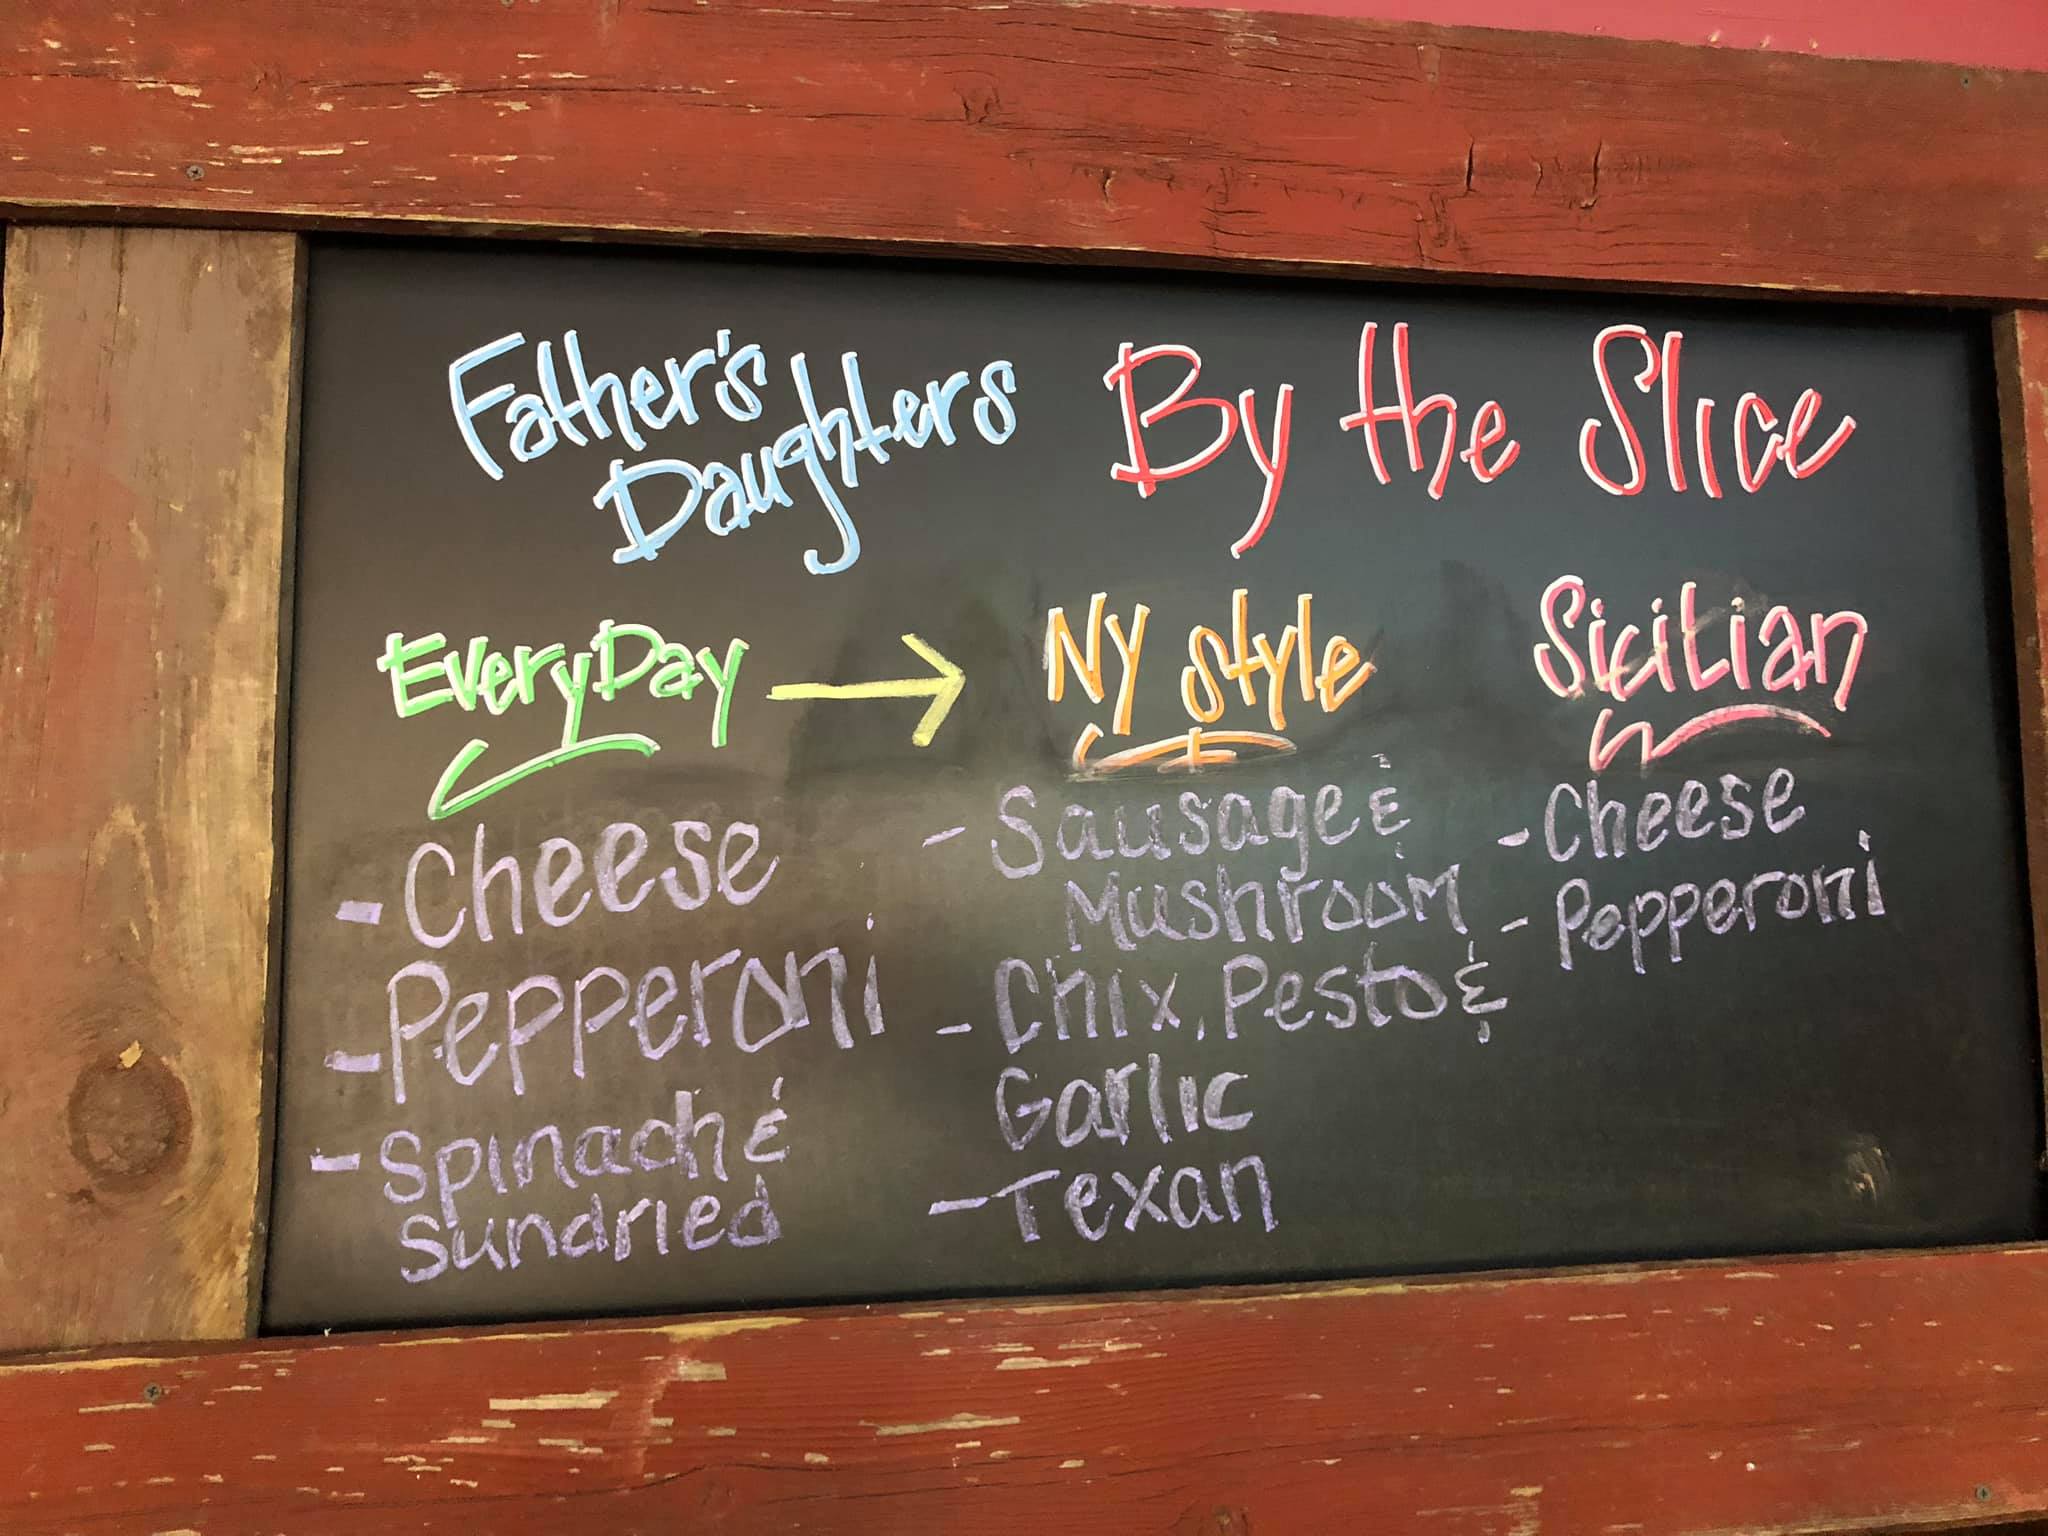 Father's
Daughters
By the Slice
EveryDay →
- Cheese
- Pepperoni
- Spinach &
Sundried
NY style
- Sausage &
Mushroom
- Chix, Pesto &
Garlic
- Texan
Sicilian
- Cheese
- Pepperoni